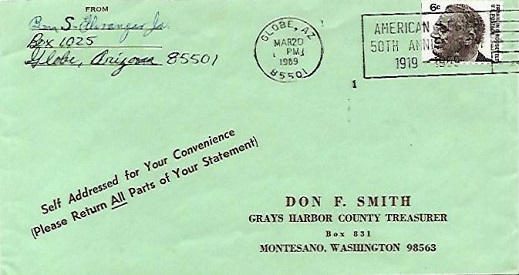 FROM
Box 1025
Globe, Arizona 85501
GLOBE, AZ
MAR 20
PM
1969
85501
AMERICAN
50TH ANNI
1919
6c
1
Self Addressed for Your Convenience
(Please Return All Parts of Your Statement)
DON F. SMITH
GRAYS HARBOR COUNTY TREASURER
Box 831
MONTESANO, WASHINGTON 98563